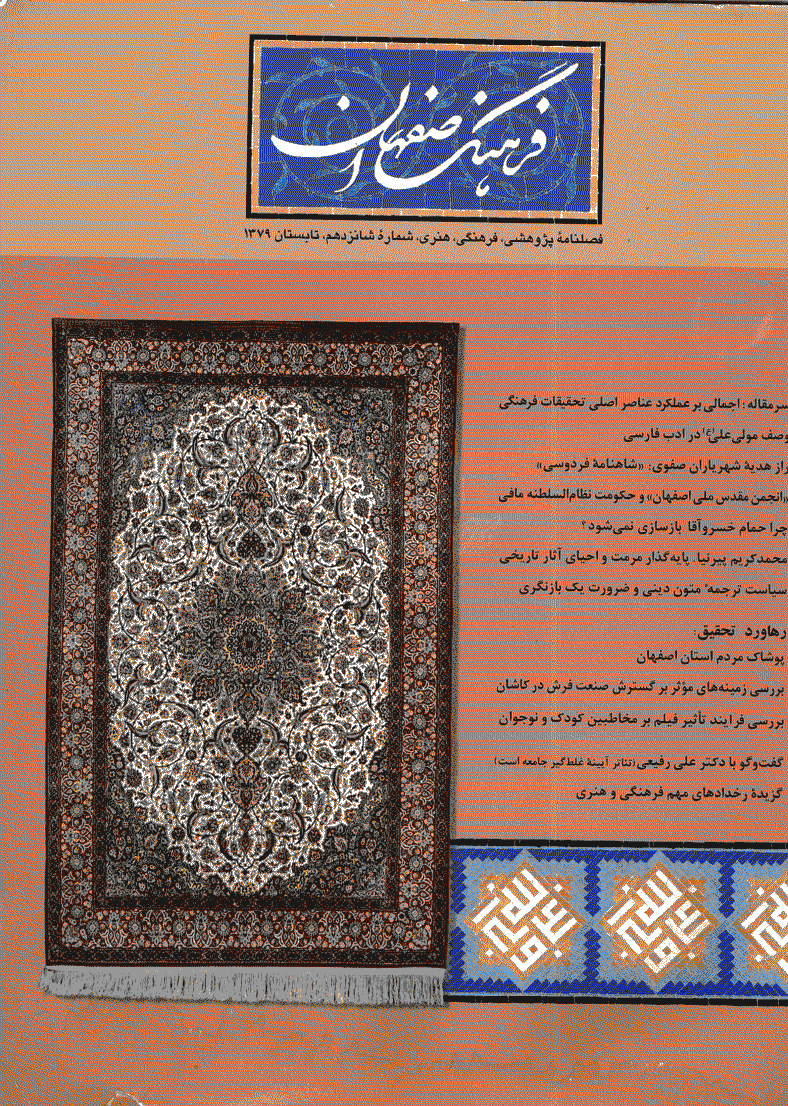 فرهنگ اصفهان
فصلنامهٔ پژوهشی، فرهنگی، هنری، شمارهٔ شانزدهم، تابستان ۱۳۷۹
سرمقاله: اجمالی بر عملکرد عناصر اصلی تحقیقات فرهنگی
وصف مولی علی(ع) در ادب فارسی
راز هدیهٔ شهریاران صفوی: «شاهنامهٔ فردوسی»
«انجمن مقدس ملی اصفهان» و حکومت نظام‌السلطنه مافی
چرا حمام خسروآقا بازسازی نمی‌شود؟
محمدکریم پیرنیا، پایه‌گذار مرمت و احیای آثار تاریخی
سیاست ترجمهٔ متون دینی و ضرورت یک بازنگری
رهاورد تحقیق:
پوشاک مردم استان اصفهان
بررسی زمینه‌های مؤثر بر گسترش صنعت فرش در کاشان
بررسی فرایند تأثیر فیلم بر مخاطبین کودک و نوجوان
گفت‌وگو با دکتر علی رفیعی (تئاتر آیینهٔ غلط‌گیر جامعه است)
گزیدهٔ رخدادهای مهم فرهنگی و هنری